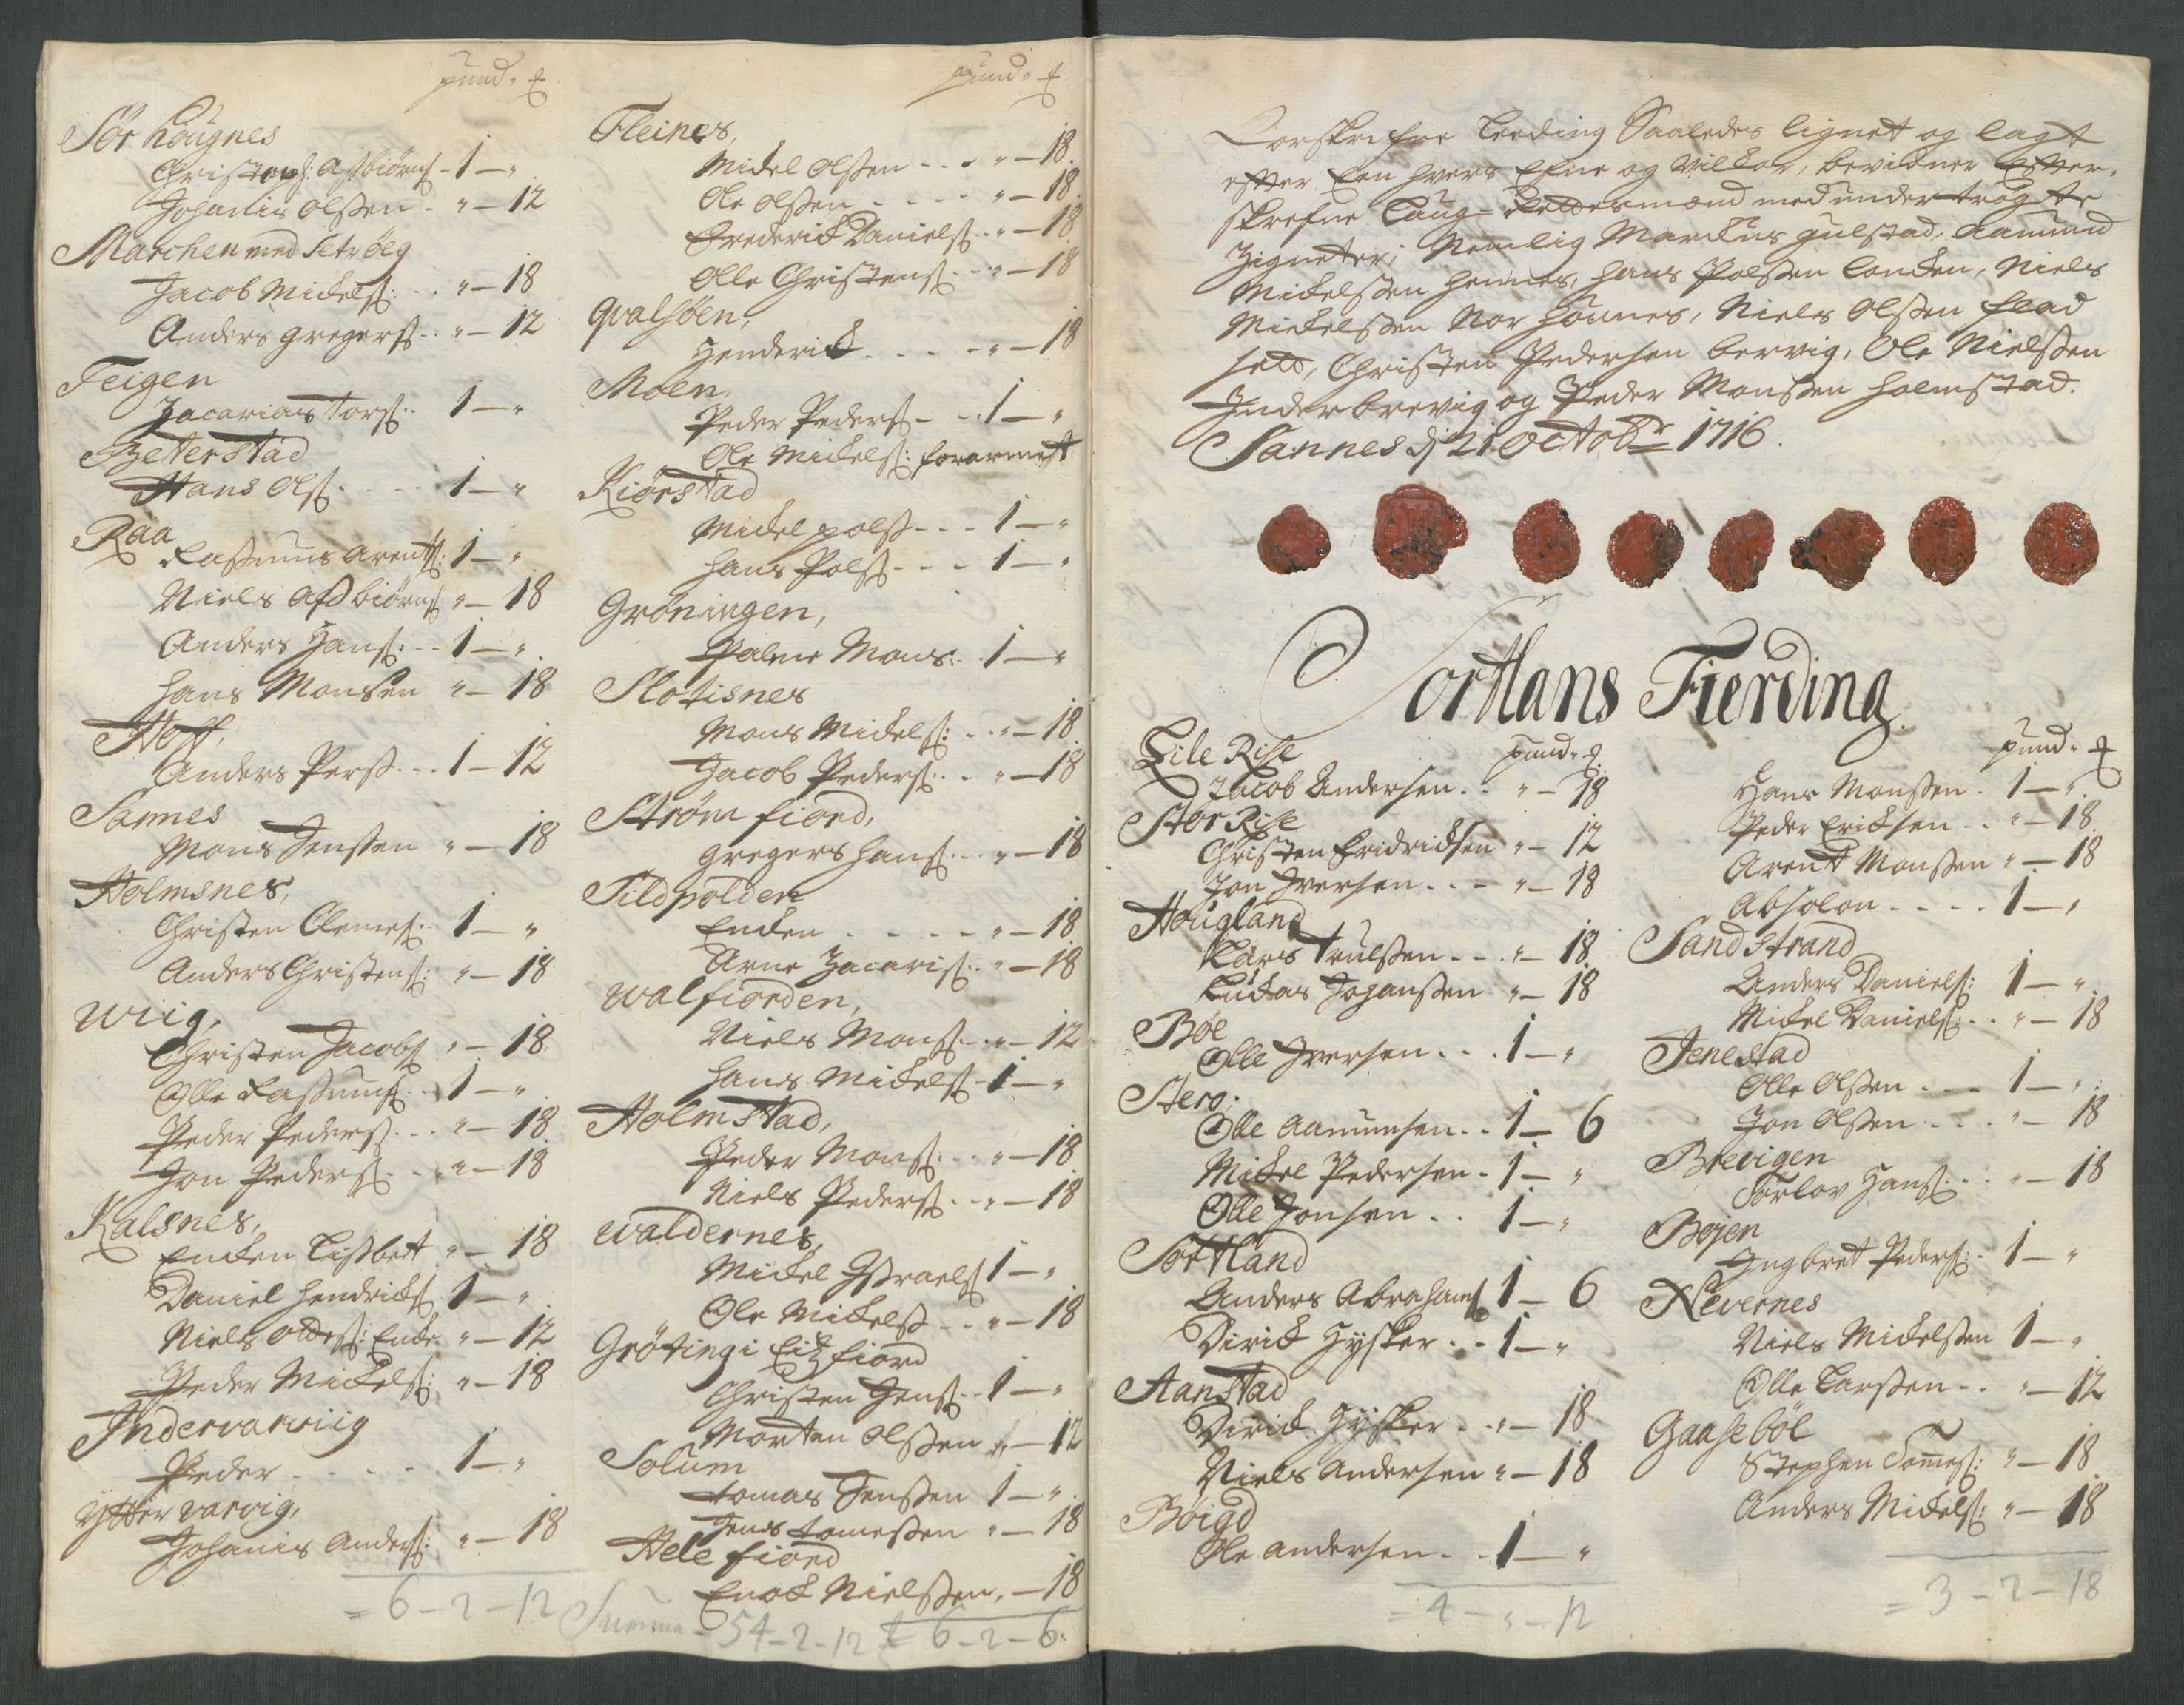 pund " ℔
Sör Höugnes
Christoph: Asbiörnß - 1 — "
Johanis Olßen . " — 12
Marchen med Setröeg
Jacob Mickelß: . . " — 18
Anders gregerß . . " — 12
Teigen
Zacarias Torß: . 1 — "
Beterstad
Hans Olß . . . . 1 — "
Raa
Raßmus Arentß: 1 — "
Niels Asbiörnß " — 18
Anders Hanß: . . 1 — "
Hans Monsen " — 18
Hoff,
Anders Perß . . . 1 — 12
Sannes
Mons Jenßen " — 18
Holmsnes,
Christen Clemeß: 1 — "
Anders Christenß: " — 18
Wiig,
Christen Jacobß " — 18
Olle Raßmusß . . 1 — "
Peder Pederß . . . " — 18
Jon Pederß . . . " — 18
Kalsnes,
Encken Lisbet " — 18
Daniel Hendrickß 1 — "
Niels Olleß: Enke " — 12
Peder Mickelß: " — 18
Indervarwiig
Peder . . . . . . 1 — "
Ytter varvig,
Johanis Anderß: " — 18
= 6 — 2 — 12
pund " ℔
Fleines,
Mickel Olßen . . . " — 18
Ole Olßen . . . . " — 18
Frederick Danielß . . " — 18
Olle Christenß . . . " — 18
Qvalsöen,
Henderick . . . . . " — 18
Moen,
Peder Pederß — . . 1 — "
Ole Mickelß: forarmet
Kiörstad
Mickel polß . . . 1 — "
Hans Polß . . . 1 — "
Gröningen,
Palme Mons: . 1 — "
Slotisnes
Mons Mickelß: . . " — 18
Jacob Pederß: . . " — 18
Ström fiord,
gregers Hanß: . . " — 18
Sildpolden
Encken . . . . . " — 18
Arne Zacariß: . " — 18
Walfiorden,
Niels Monß: . . " — 12
Hans Mickelß — 1 — "
Holmstad,
Peder Monß: . . " — 18
Niels Pederß . . " — 18
Waldernes,
Mickel Ißraelß 1 — "
Ole Mickelß . . " — 18
Grötingi Eitzfiord
Christen Jenß . . 1 — "
Morten Olßen " — 12
Solum
Tomas Jenßen 1 — "
Jens Tomeßen " — 18
Hele fiord
Enok Nielßen, — 18
Summa = 54 — 2 — 12 ℔ = 6 — 2 — 6
Forskrefne Leeding Saaledes lignet og lagt
efter Een hvers Efne og Vilkor, bevidner Efter-
skrefne Laug-Rettesmænd med undertrögte
Zigneter; Nemlig Markus gulstad, Aamund
Mickelßen Hennes, Hans Polßen Loncken, Niels
Mickelßen Nor Höunes, Niels Olßen flad
sett, Christen Pedersen bervig, Ole Nielßen
Inderbrevig og Peder Monßen Holmstad.
Sannes d 21 Octobr 1716.
Sortlans Fierding
pund " ℔
Lile Rise
Jacob Andersen . . " — 18
Stor Rise
Christen Fridricksen " — 12
Jon Iversen . . — " — 18
Hougland
Lars Trulßen . . . " — 18
Lucas Johanßen " — 18
Böe
Olle Iversen . . . 1 — "
Stero.
Olle Aamunsen . . 1 — 6
Mickel Pedersen . 1 — "
Olle Jonsen . . 1 — "
Sortland
Anders Abrahamß 1 — 6
Dirick Hysker . . 1 — "
Aanstad
Dirick Hysker . . " — 18
Niels Andersen " — 18
Böigd
Ole Andersen . . 1 — "
= 4 — " — 12
pund " ℔
Hans Monßen . 1 — "
Peder Ericksen . . " — 18
Arent Monßen " — 18
Absolon . . . . 1 — "
Sandstrand
Anders Danielß: 1 — "
Mickel Danielß: . . " — 18
Jenestad
Olle Olßen . . . 1 — "
Jon Olßen . . . " — 18
Brevigen
Torlov Hanß: . . " — 18
Bojen
Ingbret Pederß: . 1 — "
Kevernes
Niels Mickelßen 1 — "
Olle Larßen . . " — 12
Gaaseböl
Stephen Tommeß: " — 18
Anders Mickelß: " — 18
= 3 — 2 — 18